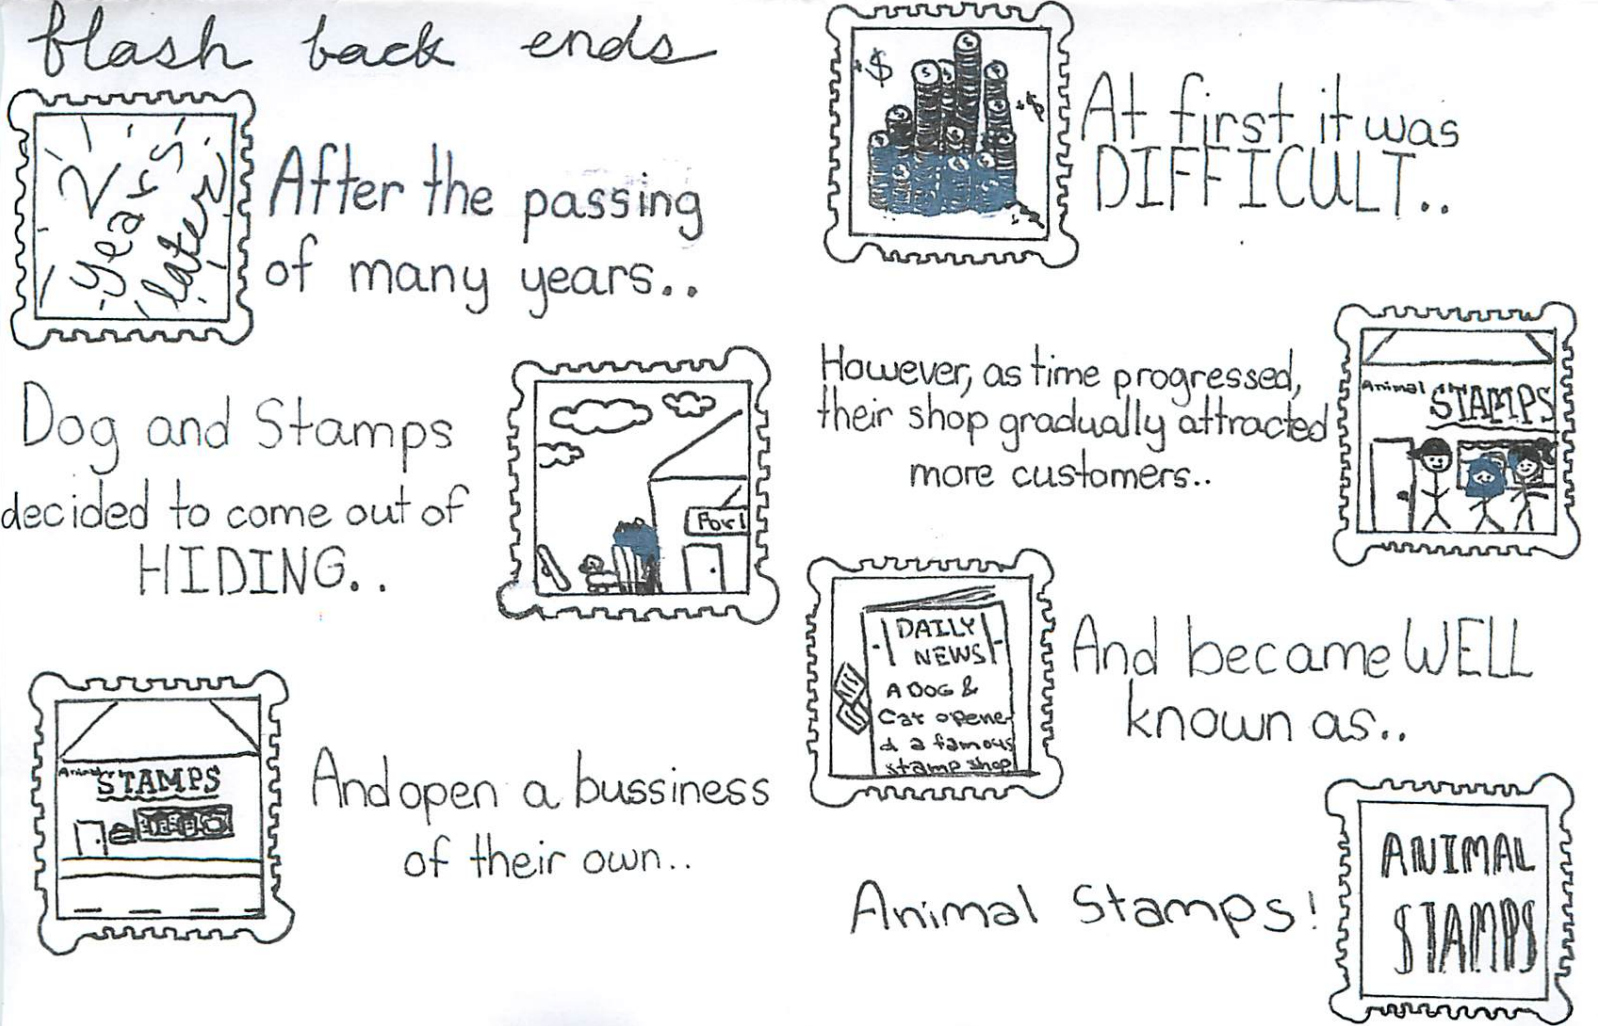 flash back ends
2
years
later
After the passing
of many years..
Dog and Stamps
decided to come out of
HIDING..
For l
Animal
STAMPS
And open a bussiness
of their own..
$
$
At first it was
DIFFICULT..
However, as time progressed,
their shop gradually attracted
more customers..
Animal
STAMPS
DAILY
NEWS
A DOG &
Cat opene
d a famous
stamp shop
And became WELL
known as..
Animal Stamps!
ANIMAL
STAMPS